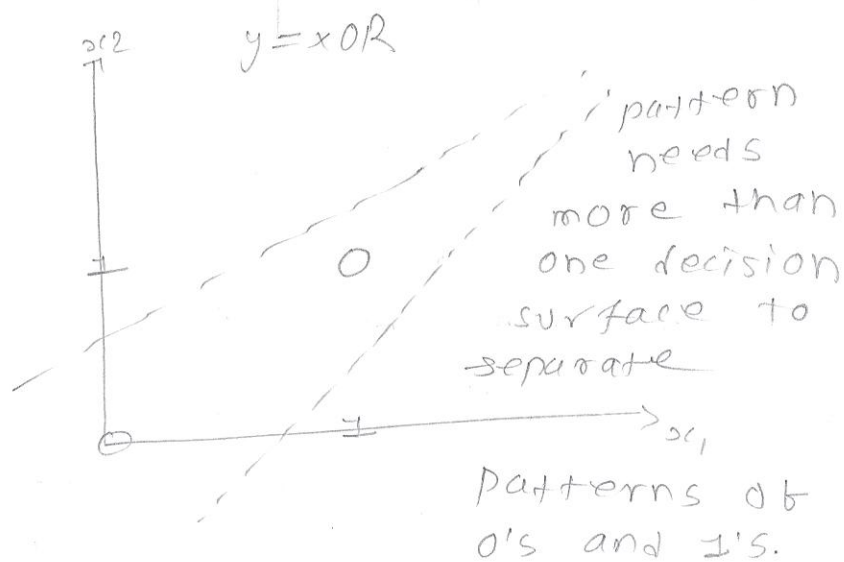 y = xOR
x2
pattern
needs
more than
one decision
surface to
separate
1
0
0
1
x1
Patterns of
0's and 1's.